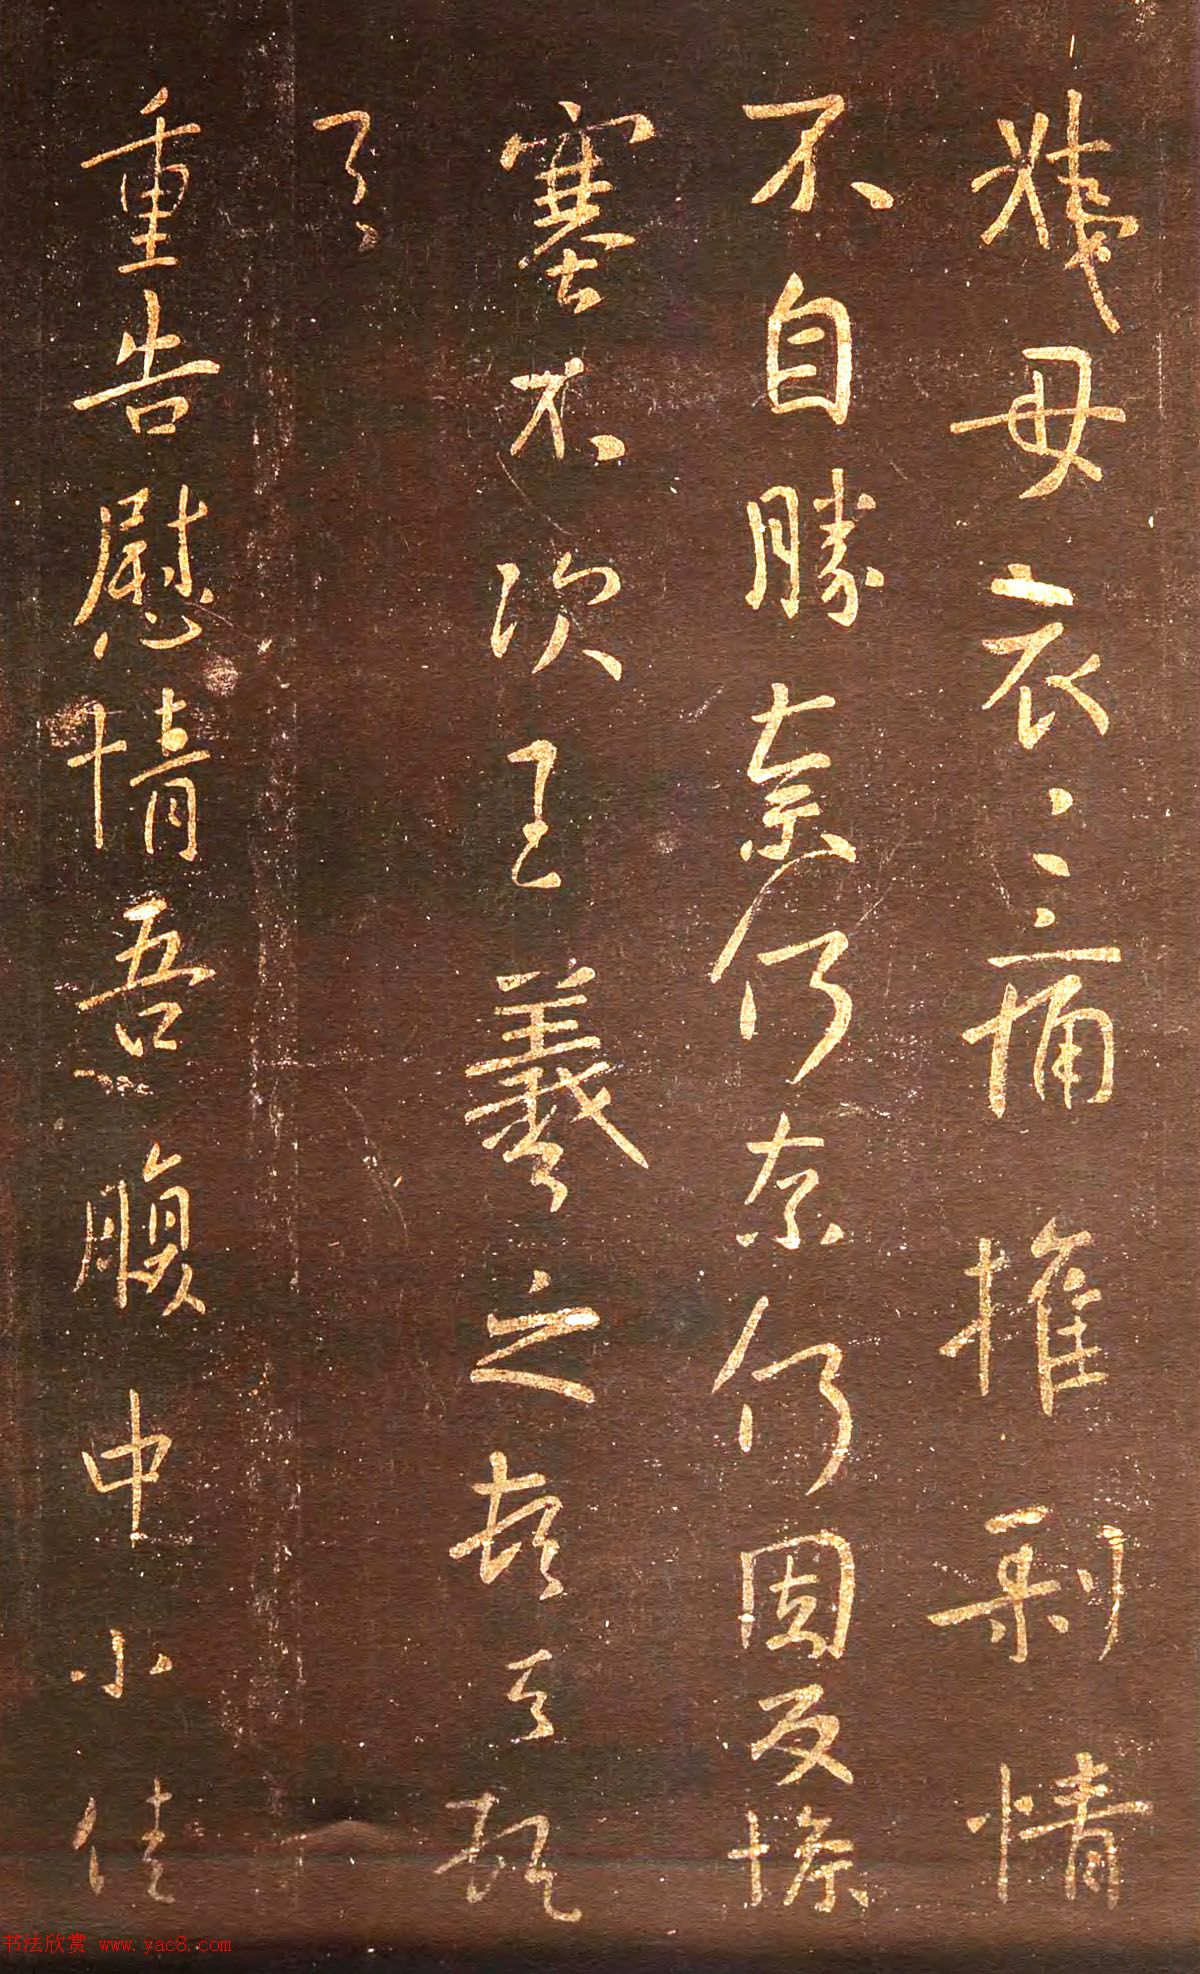 姨母哀哀痛摧剥情
不自勝奈何奈何因反慘
塞不次王羲之頓首頓
首
重告慰情吾腹中小佳
书法欣赏 www.yac8.com